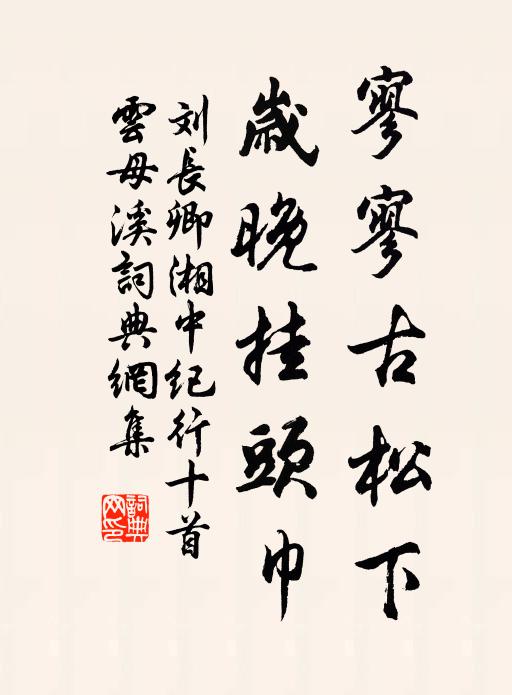 寥寥古松下
歲晚挂頭巾
刘長卿湘中紀行十首
雲母溪詞典網集
詞典網印